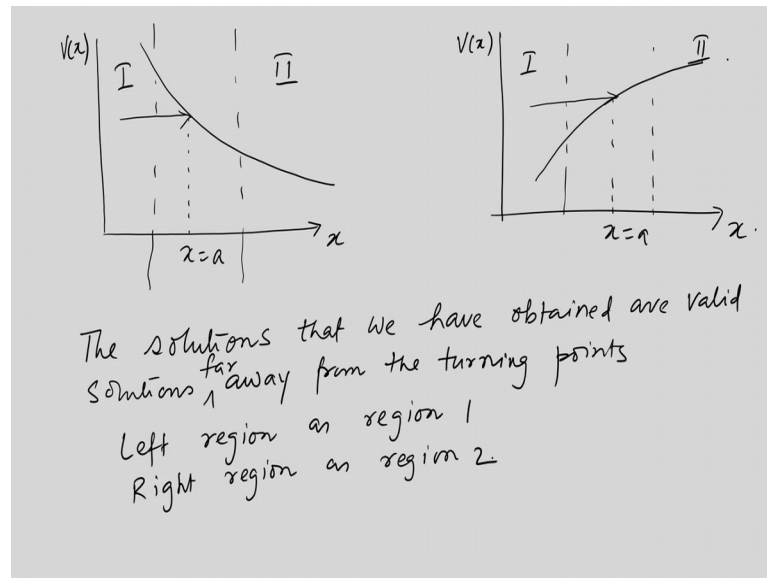 V(x)
I
II
x=a
x
V(x)
I
II
x=a
x.
The solutions that we have obtained are valid
solutions far away from the turning points
Left region as region 1
Right region as region 2.